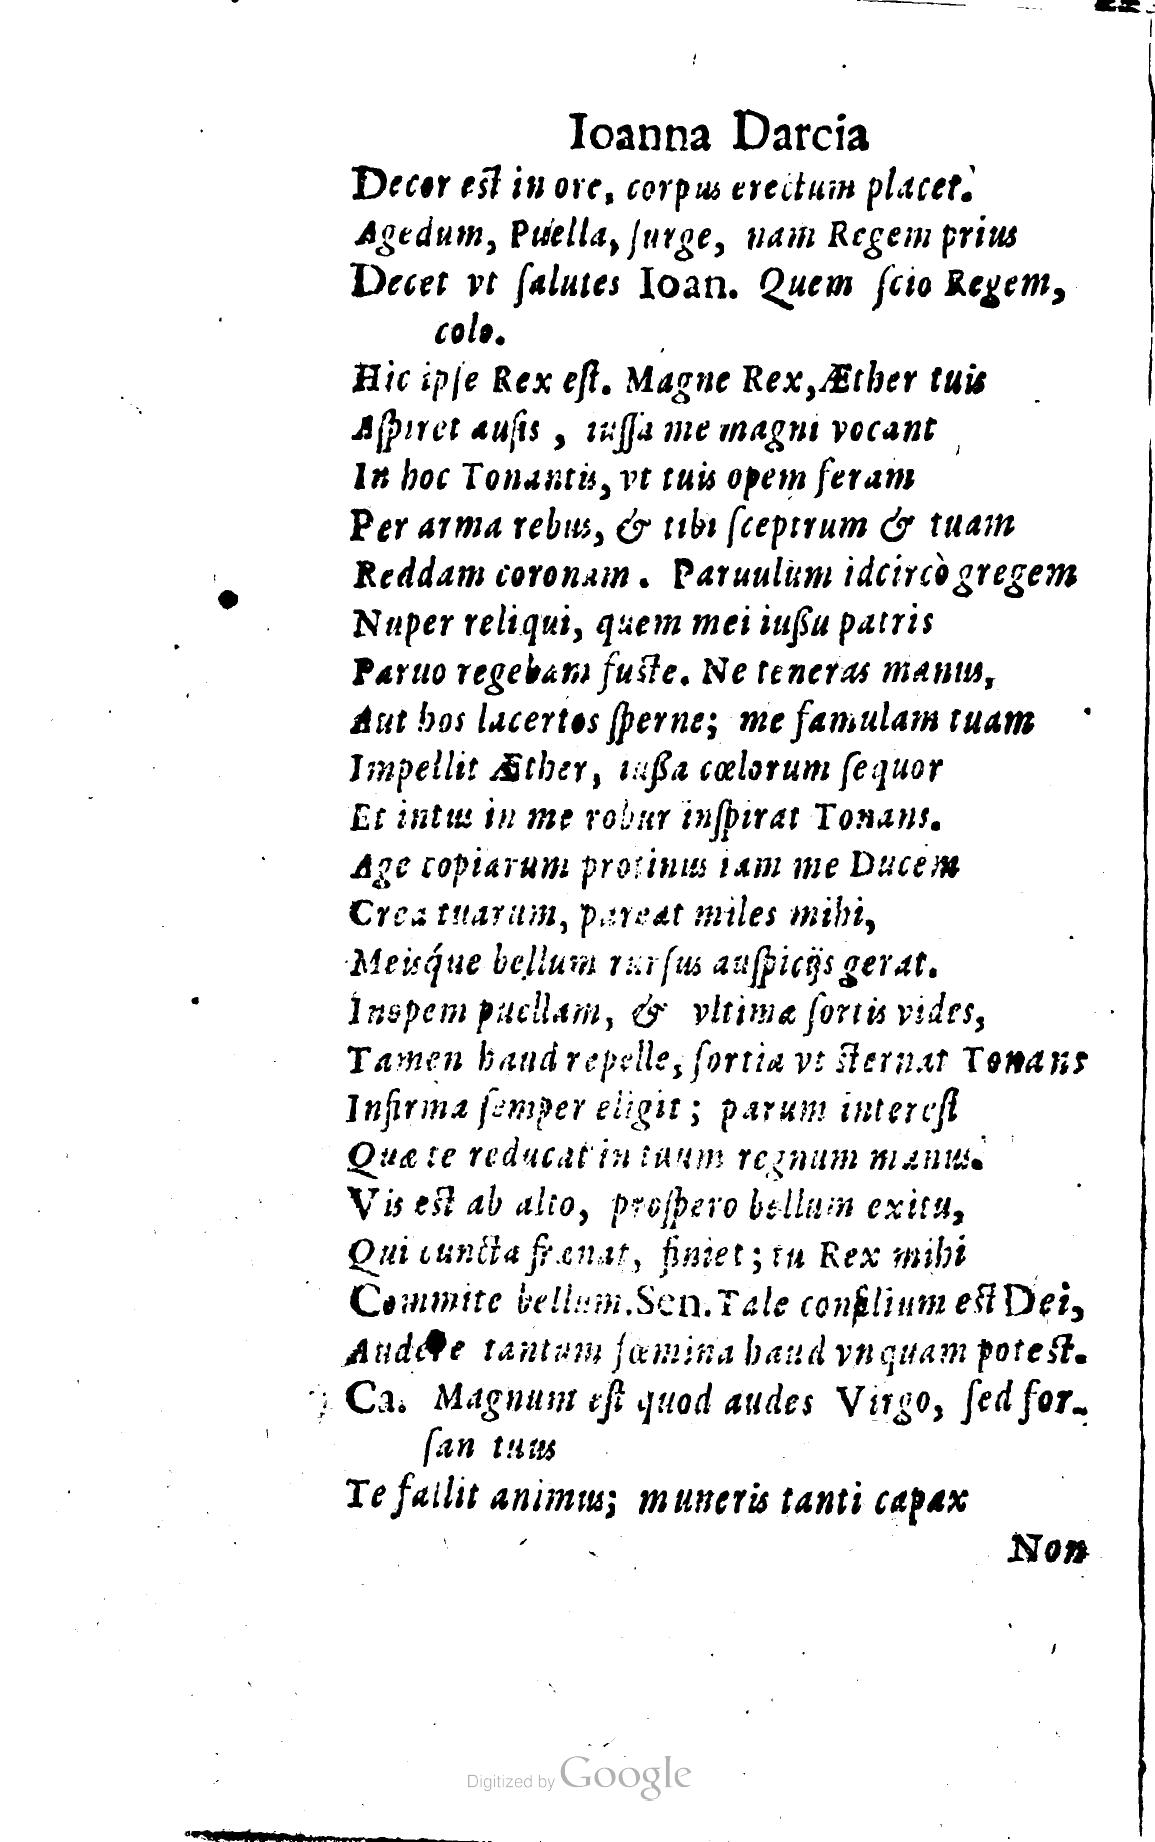 Ioanna Darcia
Decor est in ore, corpus erectum placet.
Agedum, Puella, ſurge, nam Regem prius
Decet vt ſalutes Ioan. Quem ſcio Regem,
colo.
Hic ipſe Rex eſt. Magne Rex, Æther tuis
Aſpiret auſis , iuſſa me magni vocant
In hoc Tonantis, vt tuis opem feram
Per arma rebus, & tibi ſceptrum & tuam
Reddam coronam . Paruulum idcircò gregem
Nuper reliqui, quem mei iuſsu patris
Paruo regebam fuste. Ne teneras manus,
Aut hos lacertos ſperne; me famulam tuam
Impellit Æther, iuſsa cœlorum ſequor
Et intus in me robur inſpirat Tonans.
Age copiarum protinus iam me Ducem
Crea tuarum, pareat miles mihi,
Meisq́ue bellum rurſus auſpicijs gerat.
Inopem puellam, & vltimæ ſortis vides,
Tamen haud repelle, fortia vt sternat Tonans
Infirma ſemper eligit ; parum intereſt
Quæ te reducat in tuum regnum manus.
Vis est ab alto, proſpero bellum exitu,
Qui cuncta frænat, finiet ; tu Rex mihi
Committe bellum. Sen. Tale conſilium est Dei,
Audere tantum fœmina haud vnquam potest.
Ca. Magnum eſt quod audes Virgo, ſed for-
ſan tuus
Te fallit animus; muneris tanti capax
Non
Digitized by Google